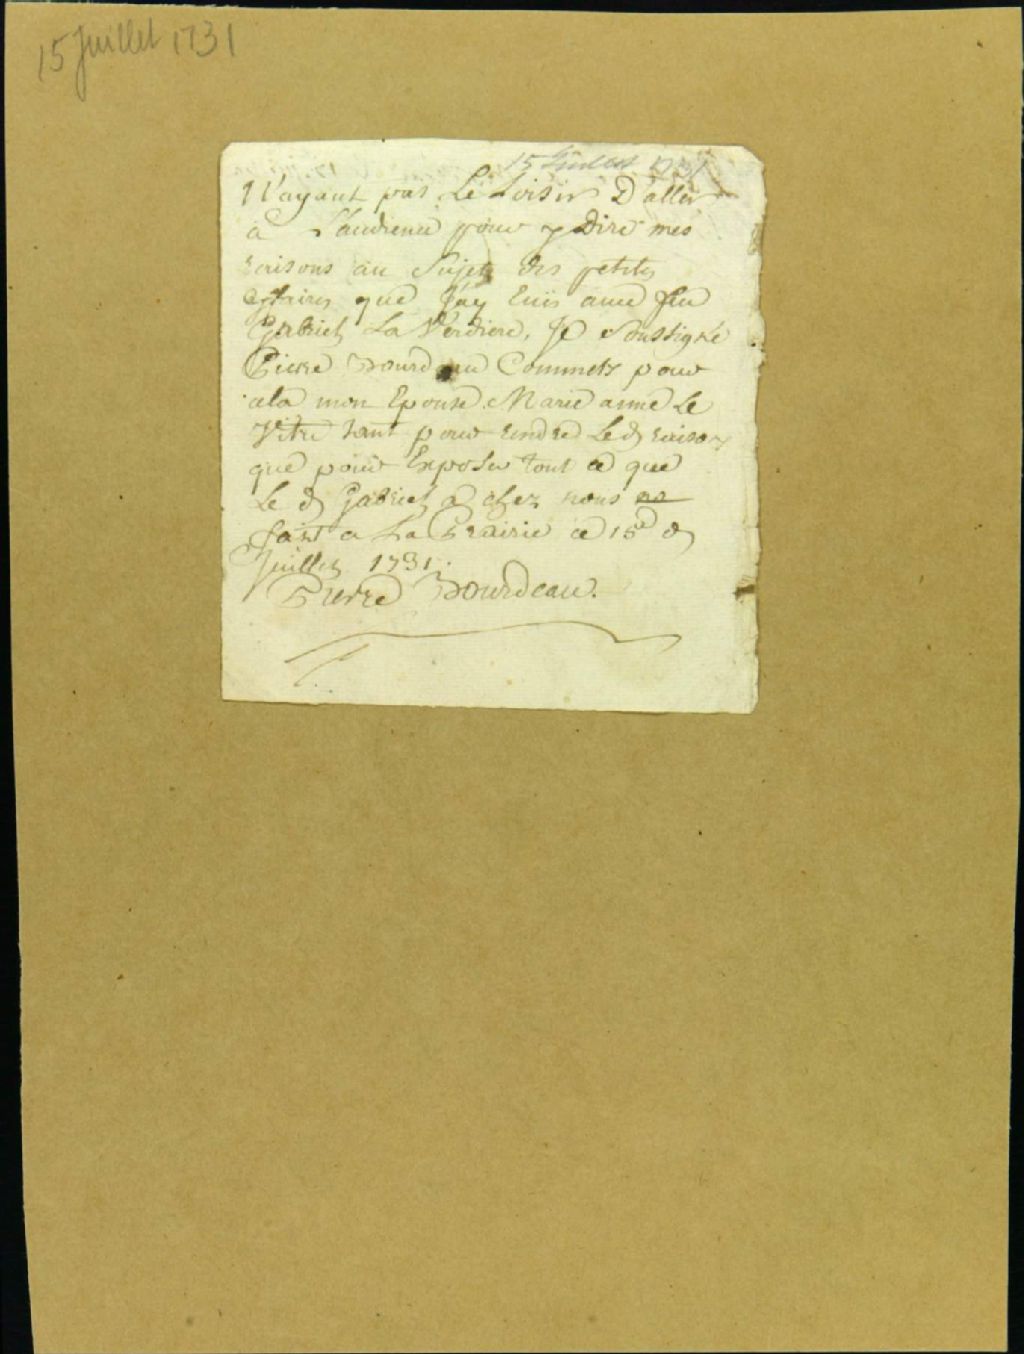 15 Juillet 1731
15 Juillet 1731
N'ayant pas Le Loisir D'aller
a L'audience pour y Dire mes
raisons au Sujet des petites
affaires que J'ay Euis avec feu
Gabriel La Verdiere, Je Soussigné
Pierre Bourdeau Commets pour
cela mon Epouse Marie anne Le
tant pour rendre Led raisons
que pour Exposer tout ce que
Le d Gabriel a chez nous
fait a La Prairie ce 15e d
Juillet 1731.
Pierre Bourdeau.